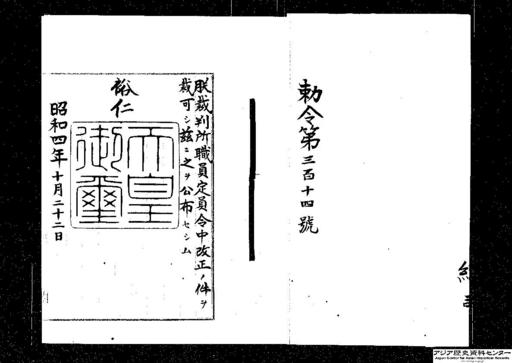 勅令第三百十四號
朕裁判所職員定員令中改正ノ件ヲ
裁可シ茲ニ之ヲ公布セシム
裕仁
天皇御璽
昭和四年十月二十二日
アジア歴史資料センター
Japan Center for Asian Historical Records